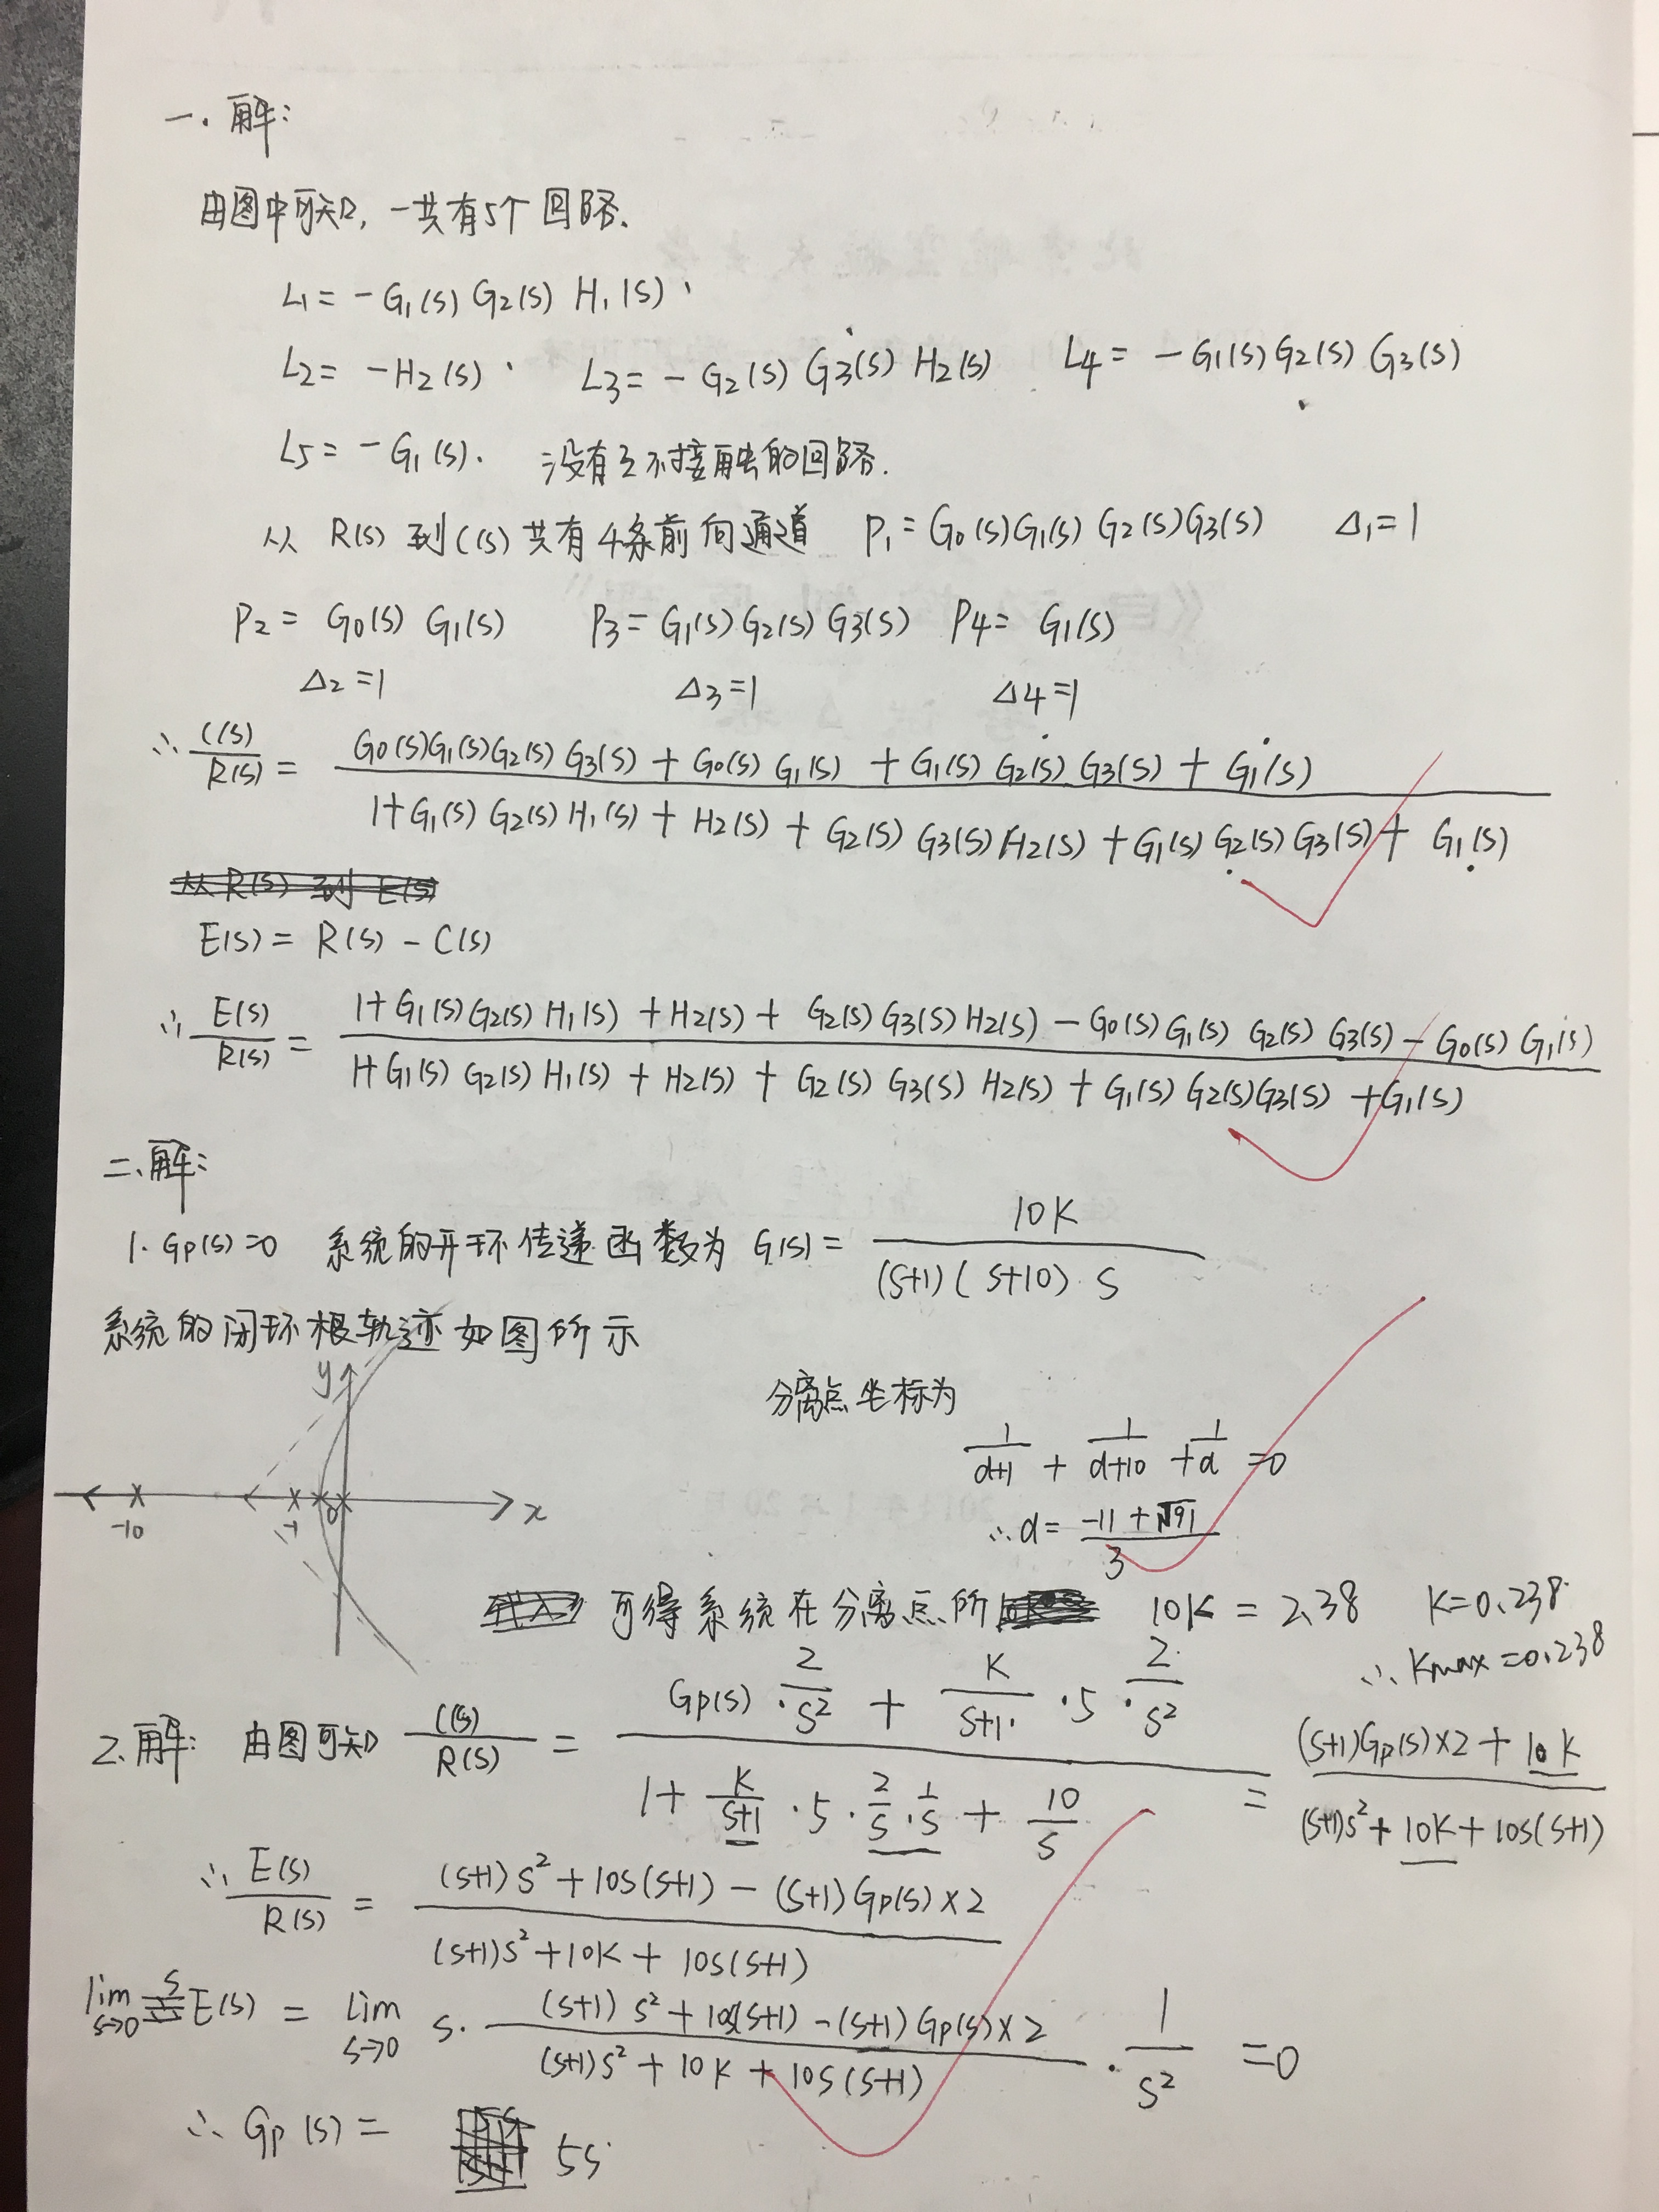 一. 解:
由图中可知, 一共有5个回路.
L1 = -G1(s) G2(s) H1(s)
L2 = -H2(s) L3 = -G2(s) G3(s) H2(s) L4 = -G1(s) G2(s) G3(s)
L5 = -G1(s). 没有互不接触的回路.
从 R(s) 到 C(s) 共有 4条前向通道 P1 = G0(s)G1(s) G2(s)G3(s) Δ1=1
P2 = G0(s) G1(s) P3 = G1(s)G2(s) G3(s) P4 = G1(s)
Δ2=1 Δ3=1 Δ4=1
∴ C(s)/R(s) = (G0(s)G1(s)G2(s) G3(s) + G0(s) G1(s) + G1(s) G2(s) G3(s) + G1(s)) / (1+G1(s) G2(s) H1(s) + H2(s) + G2(s) G3(s) H2(s) + G1(s) G2(s) G3(s) + G1(s))
从 R(s) 到 E(s)
E(s) = R(s) - C(s)
∴ E(s)/R(s) = (1+G1(s)G2(s) H1(s) + H2(s) + G2(s) G3(s) H2(s) - G0(s) G1(s) G2(s) G3(s) - G0(s) G1(s)) / (1+G1(s) G2(s) H1(s) + H2(s) + G2(s) G3(s) H2(s) + G1(s) G2(s)G3(s) + G1(s))
二、解:
1. Gp(s)=0 系统的开环传递函数为 G(s) = 10K / ((s+1)(s+10) s)
系统的闭环根轨迹如图所示
y
分离点坐标为
1/(d+1) + 1/(d+10) + 1/d = 0
-10 -1 0 x
∴ d = (-11 + √91)/3
可得系统在分离点所 10K = 2.38 K=0.238
∴ Kmax = 0.238
2. 解: 由图可知 C(s)/R(s) = (Gp(s)·2/s² + K/(s+1)·5·2/s²) / (1 + K/(s+1)·5·2/s·1/s + 10/s) = ((s+1)Gp(s)×2 + 10K) / ((s+1)s² + 10K + 10s(s+1))
∴ E(s)/R(s) = ((s+1)s² + 10s(s+1) - (s+1)Gp(s)×2) / ((s+1)s² + 10K + 10s(s+1))
lim s→0 s E(s) = lim s→0 s· ((s+1)s² + 10s(s+1) - (s+1)Gp(s)×2) / ((s+1)s² + 10K + 10s(s+1)) · 1/s² = 0
∴ Gp(s) = 5s